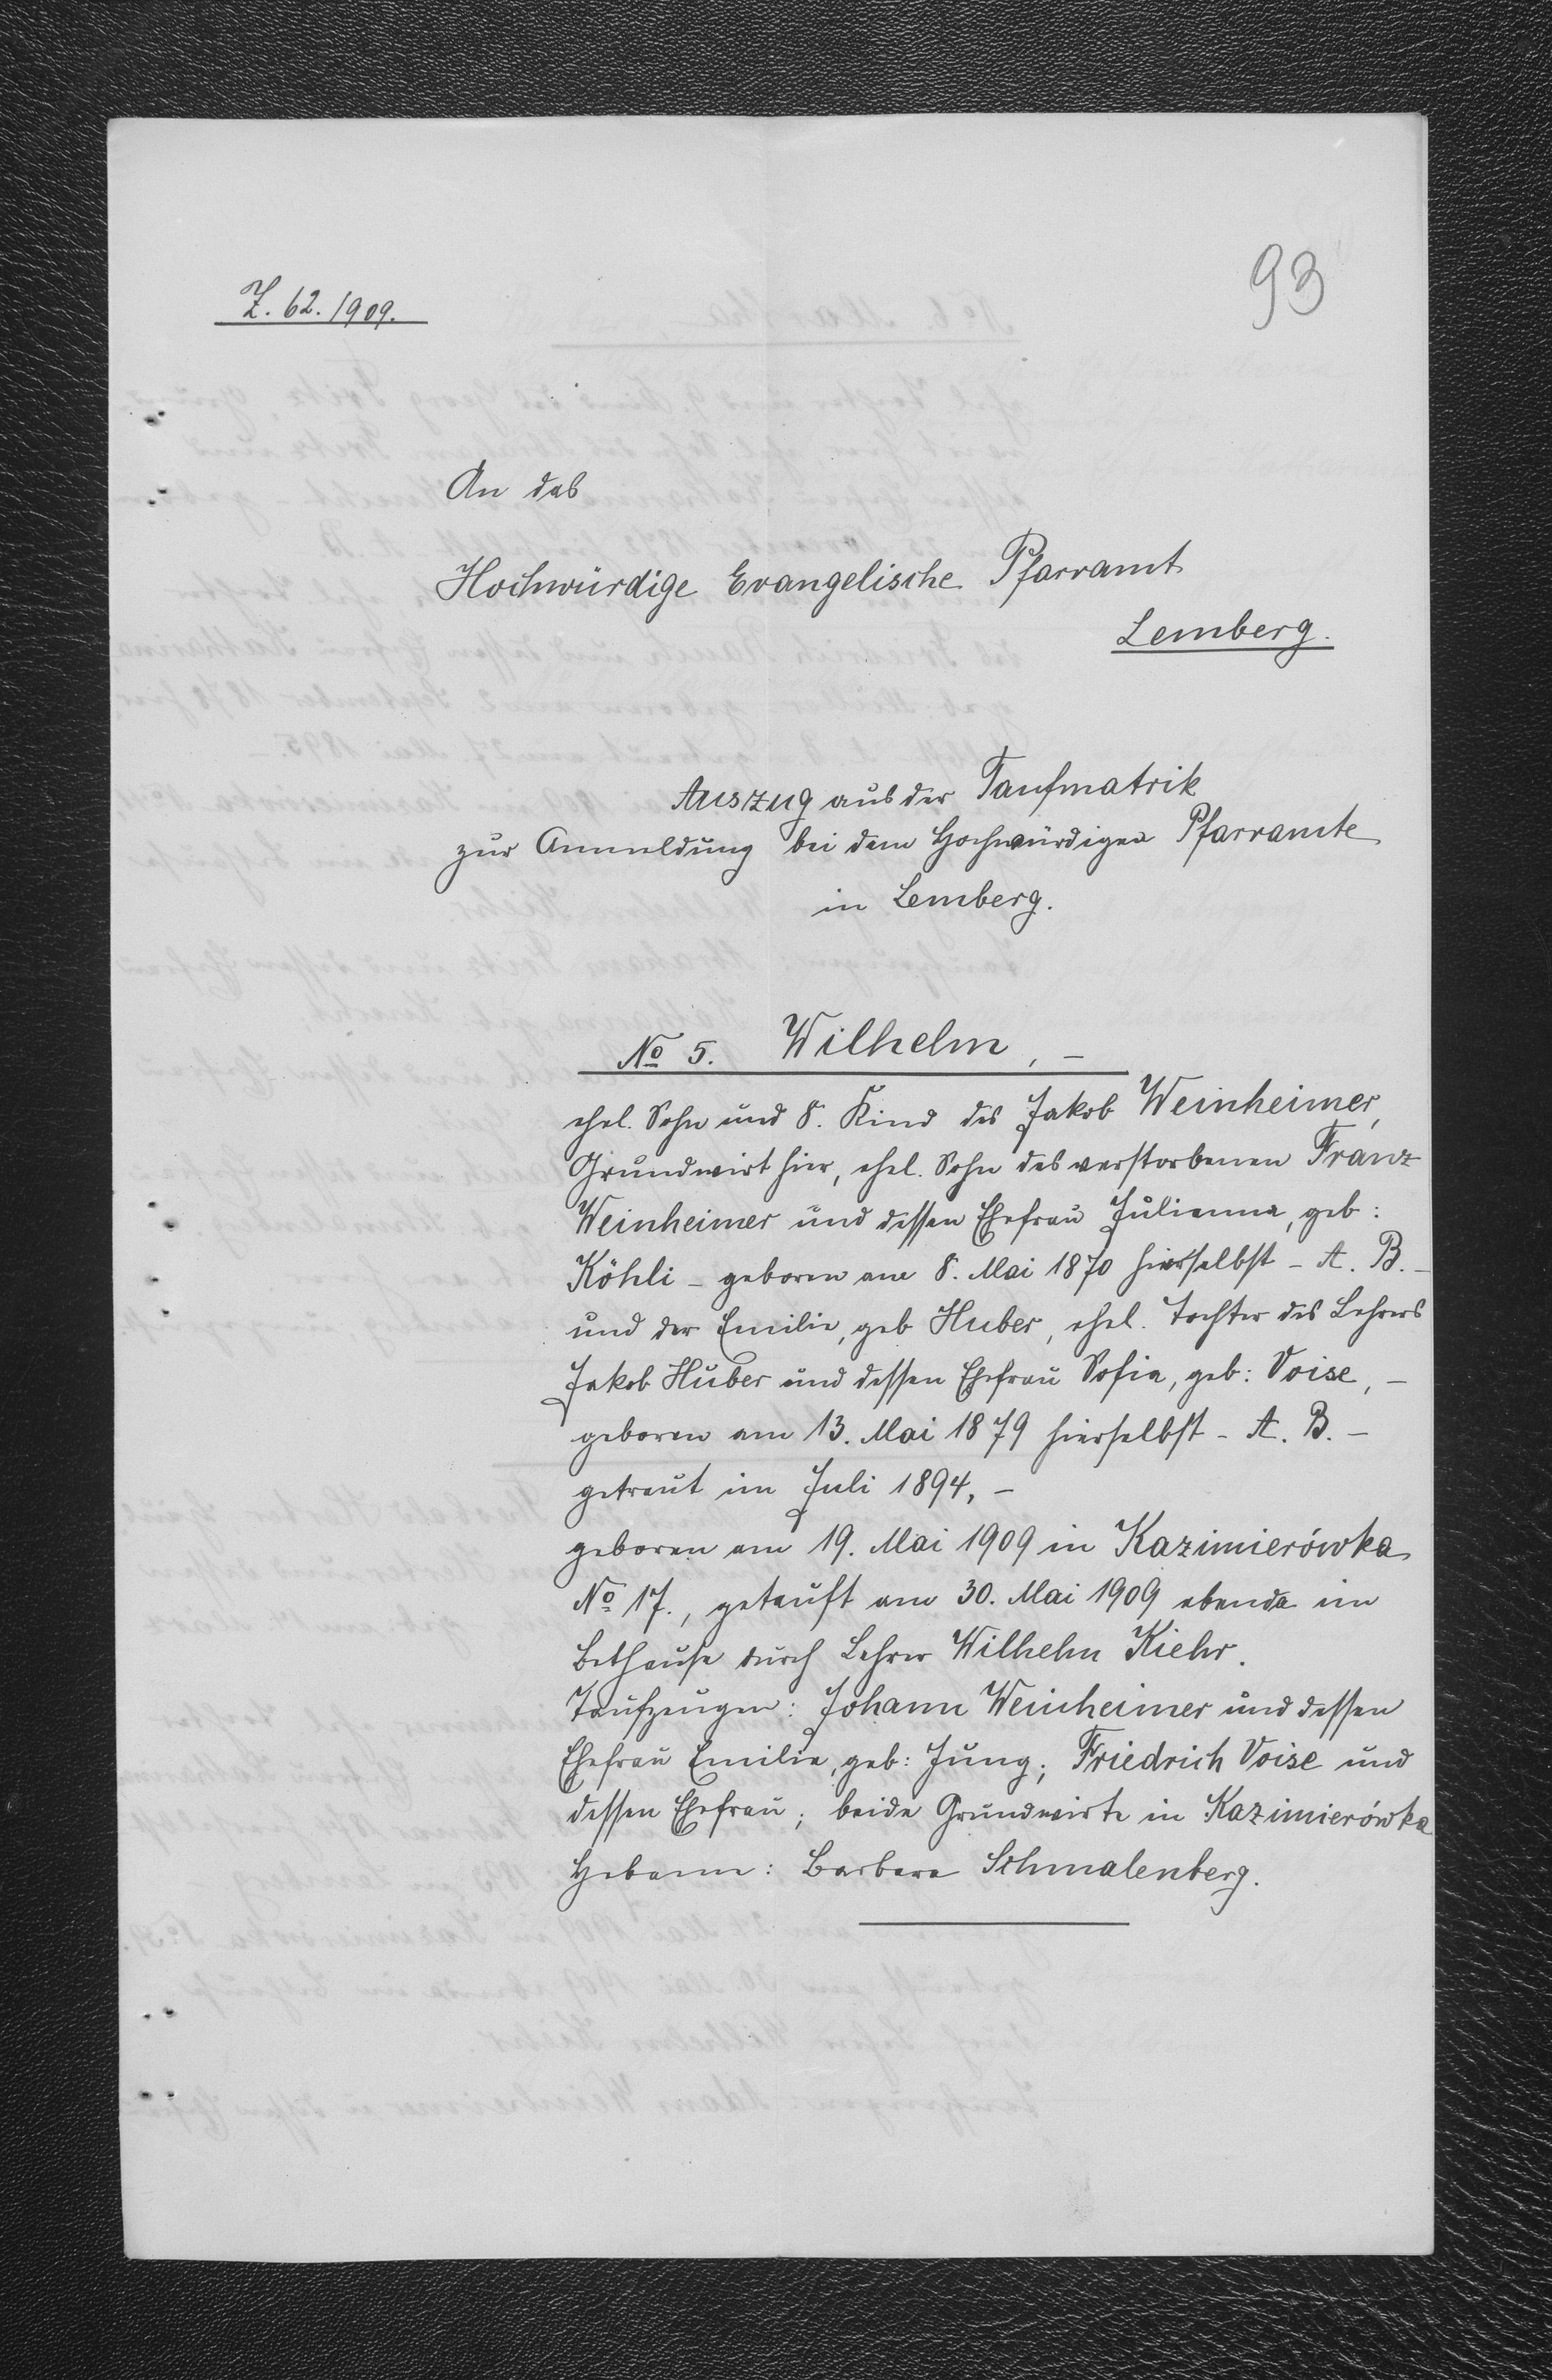 93
Z. 62. 1909.
An das
Hochwürdige Evangelische Pfarramt
Lemberg.
Auszug aus der Taufmatrik
zur Anmeldung bei dem Hochwürdigen Pfarramte
in Lemberg.
No 5. Wilhelm, –
ehel. Sohn und 8. Kind des Jakob Weinheimer,
Grundwirt hier, ehel. Sohn des verstorbenen Franz
Weinheimer und dessen Ehefrau Julianna, geb:
Köhli – geboren am 8. Mai 1870 hierselbst – A. B. –
und der Emilie, geb Huber, ehel. Tochter des Lehrers
Jakob Huber und dessen Ehefrau Sofia, geb: Voise, –
geboren am 13. Mai 1879 hierselbst – A. B. –
getraut im Juli 1894, –
geboren am 19. Mai 1909 in Kazimierówka
No 17., getauft am 30. Mai 1909 ebenda im
Bethause durch Lehrer Wilhelm Kiehr.
Taufzeugen: Johann Weinheimer und dessen
Ehefrau Emilie, geb: Jung; Friedrich Voise und
dessen Ehefrau; beide Grundwirte in Kazimierówka
Hebamme: Barbara Schmalenberg.